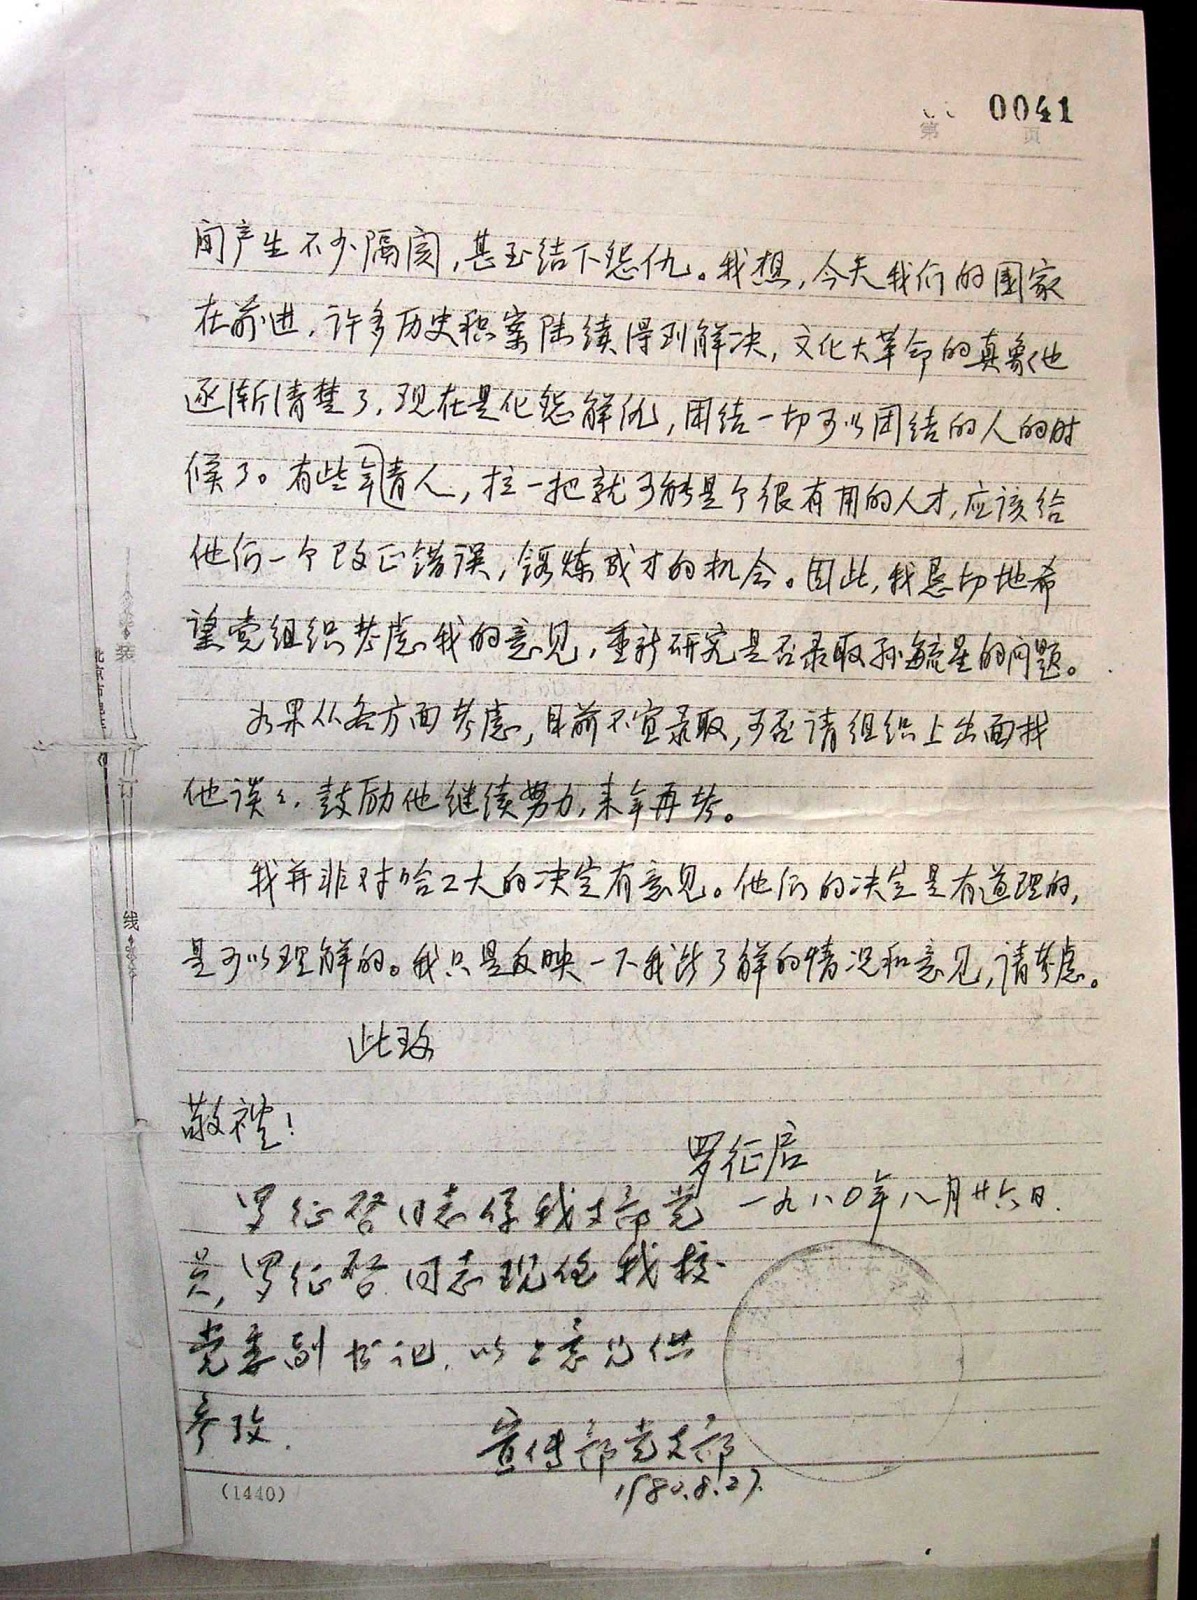 0041
第 页
间产生不少隔阂,甚至结下怨仇。我想,今天我们的国家
在前进,许多历史积案陆续得到解决,文化大革命的真象也
逐渐清楚了,现在是化怨解仇,团结一切可以团结的人的时
候了。有些年青人,拉一把就可能是个很有用的人才,应该给
他们一个改正错误,锻炼成才的机会。因此,我恳切地希
望党组织考虑我的意见,重新研究是否录取孙毓星的问题。
如果从各方面考虑,目前不宜录取,可否请组织上出面找
他谈々,鼓励他继续努力,来年再考。
我并非对哈工大的决定有意见。他们的决定是有道理的,
是可以理解的。我只是反映一下我所了解的情况和意见,请考虑。
此致
敬礼!
罗征启
一九八〇年八月廿六日.
罗征启同志系我支部党
员,罗征启同志现任我校
党委副书记.以上意见供
参考.
宣传部党支部
1980.8.27.
装
订
线
(1440)